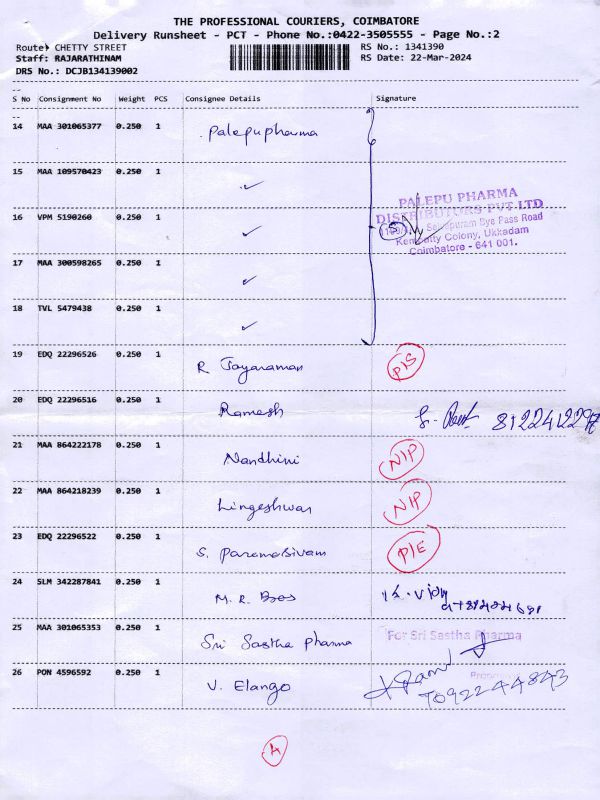 THE PROFESSIONAL COURIERS, COIMBATORE
Delivery Runsheet - PCT - Phone No.:0422-3505555 - Page No.:2
Route: CHETTY STREET RS No.: 1341390
Staff: RAJARATHINAM RS Date: 22-Mar-2024
DRS No.: DCJB134139002
S No Consignment No Weight PCS Consignee Details Signature
14 MAA 301065377 0.250 1 Palepu pharma
15 MAA 109570423 0.250 1 ✓
PALEPU PHARMA
DISTRIBUTORS PVT LTD
16 VPM 5190260 0.250 1 ✓
Bye Pass Road
Colony, Ukkadam
Coimbatore - 641 001.
17 MAA 300598265 0.250 1 ✓
18 TVL 5479438 0.250 1 ✓
19 EDQ 22296526 0.250 1 R Jayaraman P/S
20 EDQ 22296516 0.250 1 Ramesh
21 MAA 864222178 0.250 1 Nandhini N/P
22 MAA 864218239 0.250 1 Lingeshwar N/P
23 EDQ 22296522 0.250 1 S. Paramasivam P/E
24 SLM 342287841 0.250 1 M. R. Bros
25 MAA 301065353 0.250 1 Sri Sastha pharma For Sri Sastha Pharma
26 PON 4596592 0.250 1 V. Elango
4